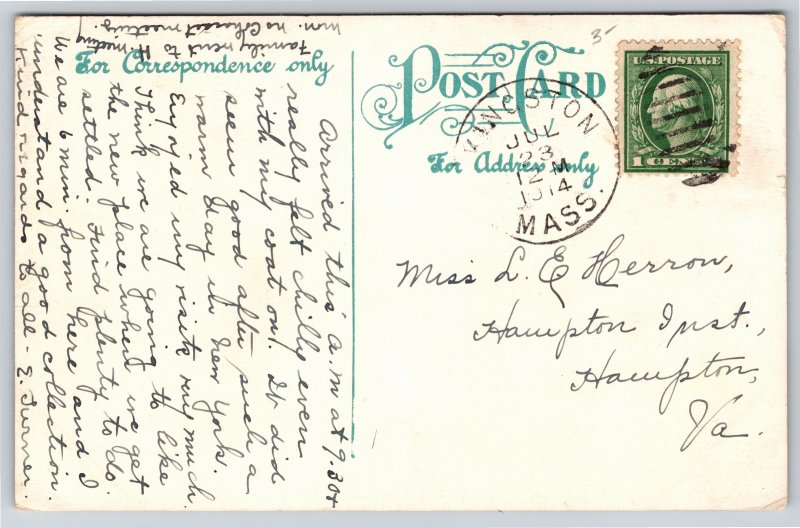 For Correspondence only
POST CARD
For Address only
U.S. POSTAGE
1 CENT
KINGSTON
JUL
23
12 M
1914
MASS.
3-
Miss L. E Herron,
Hampton Inst.,
Hampton,
Va.
Arrived this a.m at 9.30 &
really felt chilly even
with my coat on. It did
seem good after such a
warm day in New York.
Enjoyed my visits very much.
Think we are going to like
the new place when we get
settled. Find plenty to do.
We are 6 min. from here and I
understand a good collection.
Kind regards to all - E. Turner.
Family went to H. meeting
mon. no Cohasset meeting.